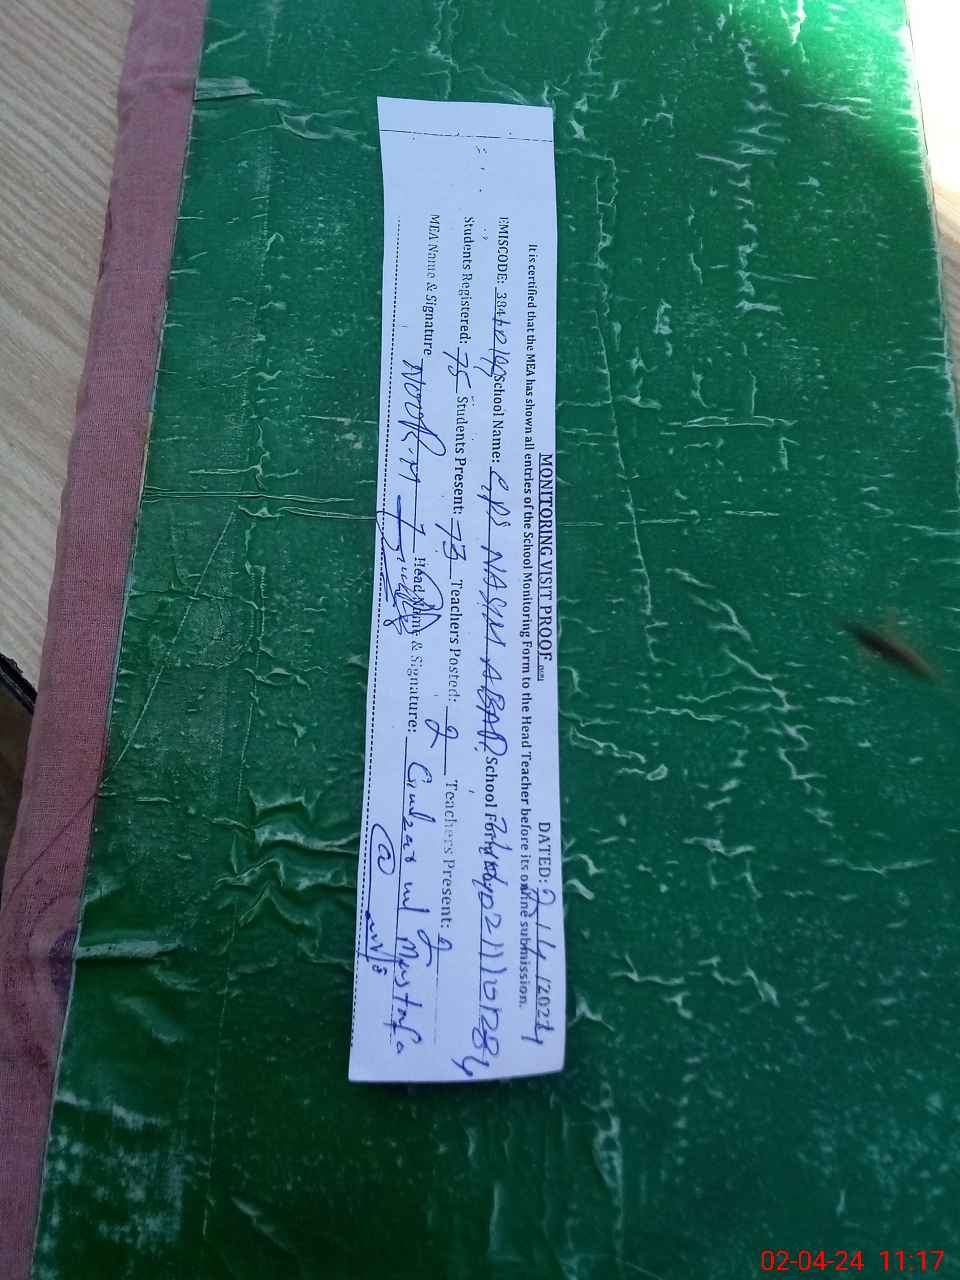 MONITORING VISIT PROOF DATED: 2/4/2024
It is certified that the MEA has shown all entries of the School Monitoring Form to the Head Teacher before its online submission.
EMISCODE: School Name: GPS NASIM ABAD School
Students Registered: 75 Students Present: 73 Teachers Posted: 2 Teachers Present: 2
MEA Name & Signature NOOR.M Head Name & Signature: Gulzar ul Mustafa
02-04-24 11:17